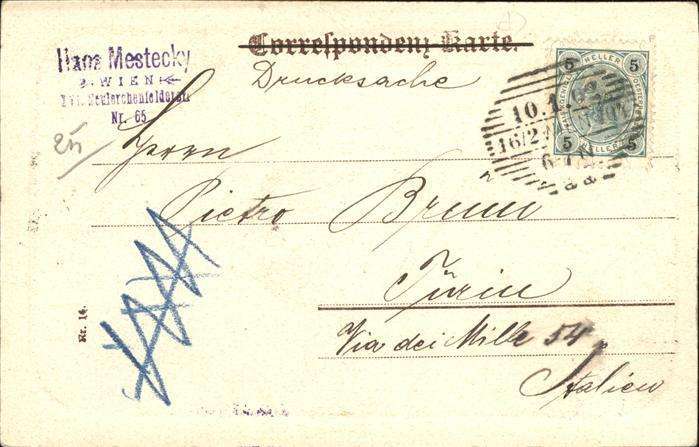 Correspondenz Karte.
Drucksache
Hans Mestecky
WIEN
XVI. Neulerchenfelderstr.
Nr. 65
5 HELLER 5
5 HELLER 5
10.1.02
16/2
Herrn
Pietro Brunu
Turin
Via dei Mille 54
Italien
Nr. 14.